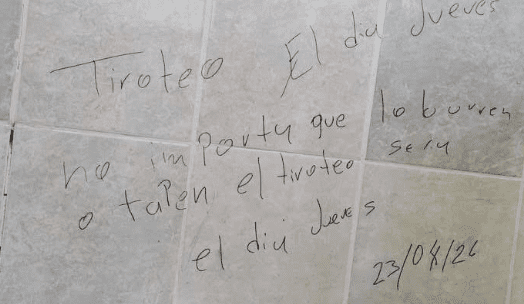 Tiroteo El diu Jueves
no importu que lo burren
o tapen el tiroteo seru
el diu Jueves
23/04/26